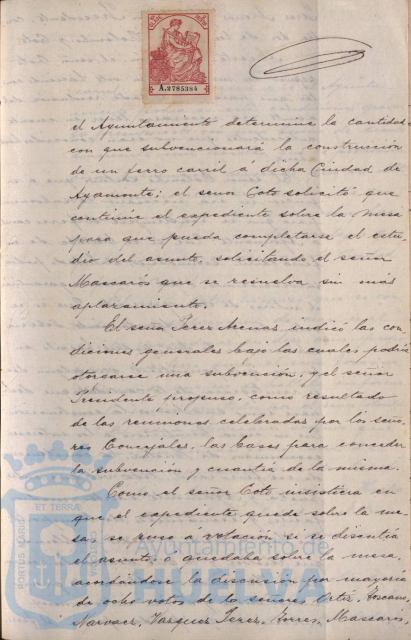 A.2785384
el Ayuntamiento determine la cantidad
con que subvencionará la construcción
de un ferro carril á dicha Ciudad de
Ayamonte; el señor Coto solicitó que
continúe el expediente sobre la mesa
para que pueda completarse el estu-
dio del asunto, solicitando el señor
Mascarós que se resuelva sin más
aplazamiento.
El señor Perez Arenas indicó las con
diciones generales bajo las cuales podría
otorgarse una subvención, y el señor
Presidente propuso, como resultado
de las reuniones celebradas por los seño
res Concejales, las bases para conceder
la subvención y cuantía de la misma.
Como el señor Coto insistiera en
que el expediente quede sobre la me
sa, se puso á votación si se discutía
el asunto, ó quedaba sobre la mesa,
acordándose la discusión por mayoría
de ocho votos de los señores Ortiz, Toscano,
Narvaez, Vazquez Perez, Torres, Mascarós,
PORTUS MARIS
ET TERRÆ
Ayuntamiento de
HUELVA